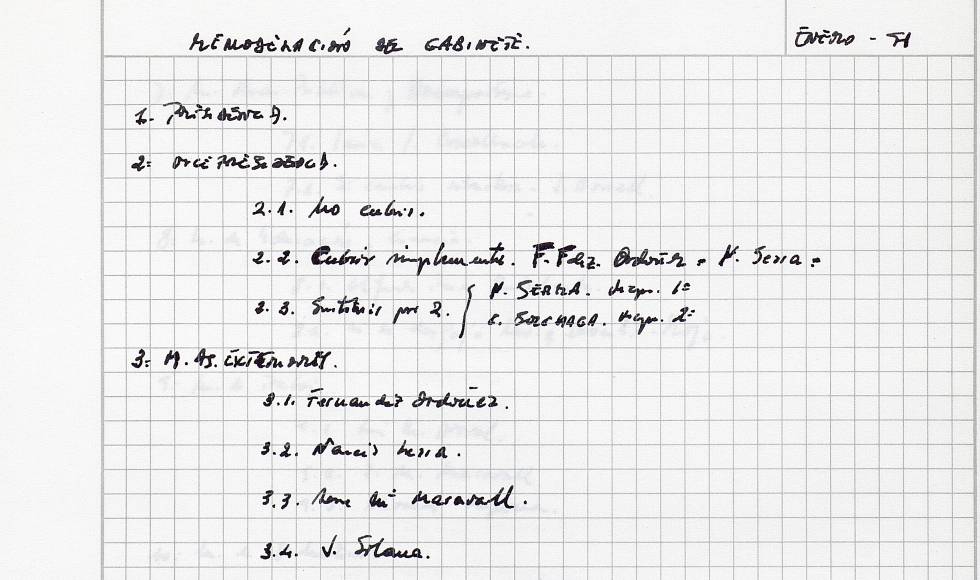 REMODELACIÓ DEL GABINETE. ENERO - 91
1. PRESIDENCIA.
2. VICEPRESIDENCIA.
2.1. No cubrir.
2.2. Cubrir simplemente. F. Fdez. Ordóñez = N. Serra =
2.3. Sustituir por 2. { N. SERRA. vicep. 1ª
C. SOLCHAGA. vicep. 2ª
3. M. AS. EXTERIORES.
3.1. Fernandez Ordóñez.
3.2. Narcis Serra.
3.3. Jose Mª Maravall.
3.4. J. Solana.